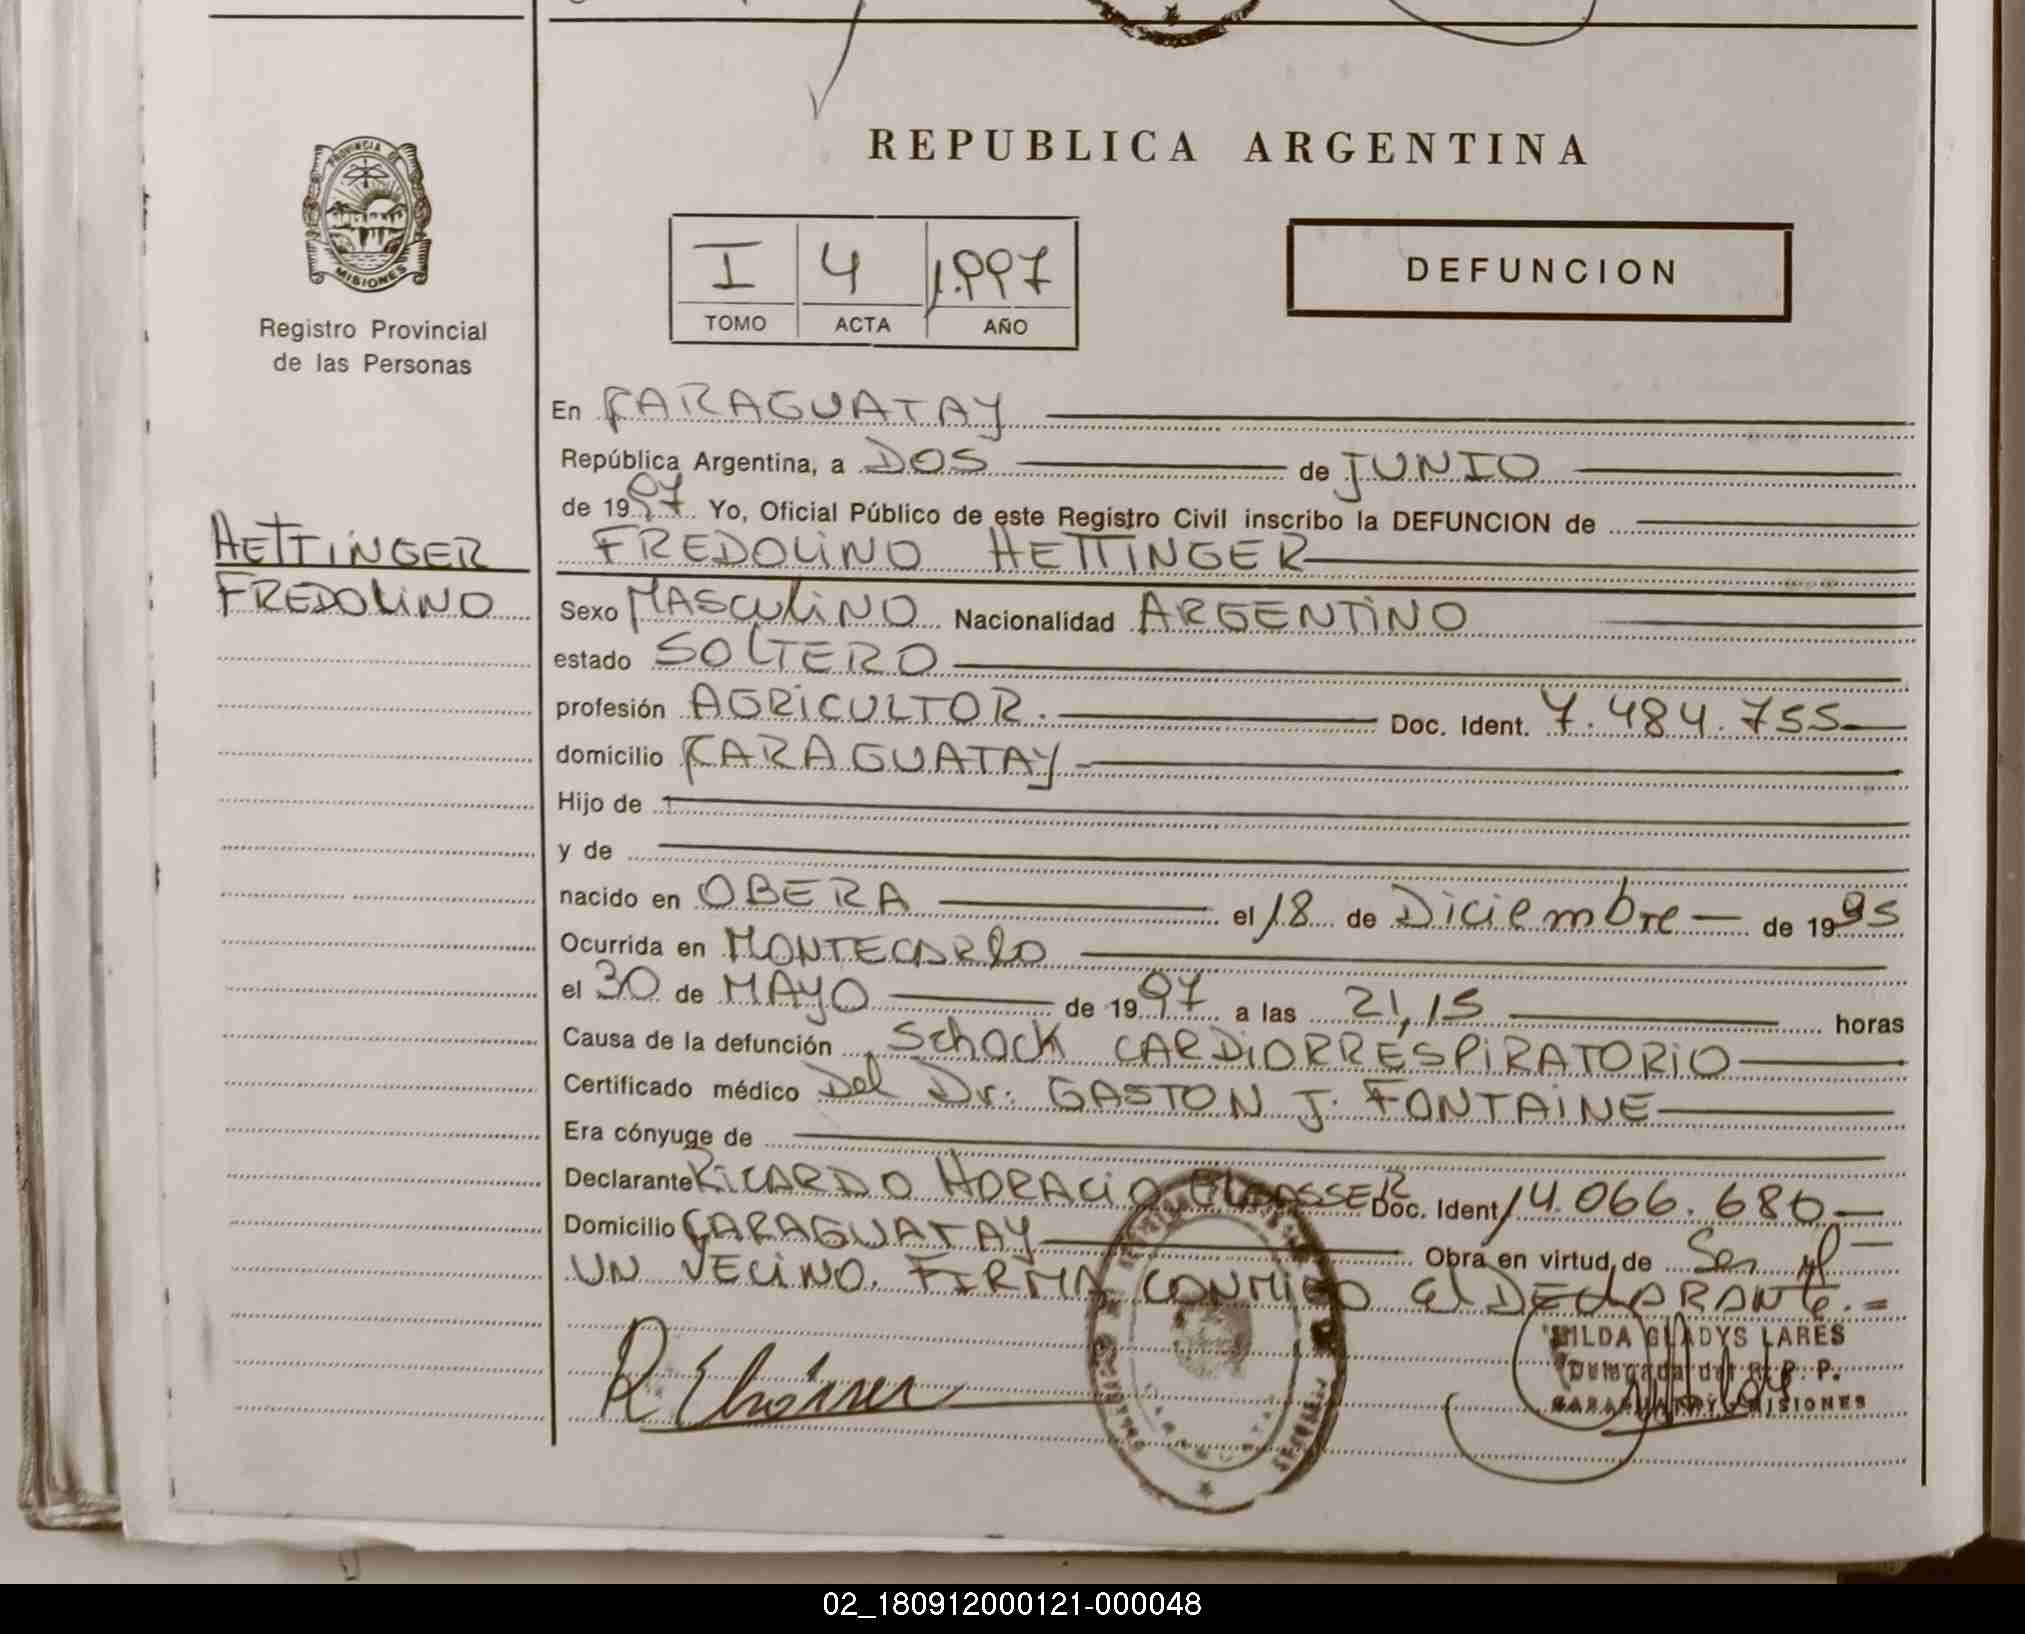 REPUBLICA ARGENTINA
PROVINCIA DE
MISIONES
Registro Provincial
de las Personas
I 4 1.997
TOMO ACTA AÑO
DEFUNCION
En CARAGUATAY
República Argentina, a DOS de JUNIO
de 1997 Yo, Oficial Público de este Registro Civil inscribo la DEFUNCION de
HETTINGER
FREDOLINO
FREDOLINO HETTINGER
Sexo MASCULINO Nacionalidad ARGENTINO
estado SOLTERO
profesión AGRICULTOR. Doc. Ident. 7.484.755
domicilio CARAGUATAY
Hijo de
y de
nacido en OBERA el 18 de Diciembre de 19
Ocurrida en MONTECARLO
el 30 de MAYO de 1997 a las 21,15 horas
Causa de la defunción Schock CARDIORRESPIRATORIO
Certificado médico Del Dr. GASTON J. FONTAINE
Era cónyuge de
Declarante RICARDO HORACIO Doc. Ident 14.066.680
Domicilio CARAGUATAY Obra en virtud de Ser el
UN VECINO. FIRMA CONMIGO El DEClARANTE.=
GLADYS LARES
Delegada del R. P. P.
CARAGUATAY MISIONES
02_180912000121-000048